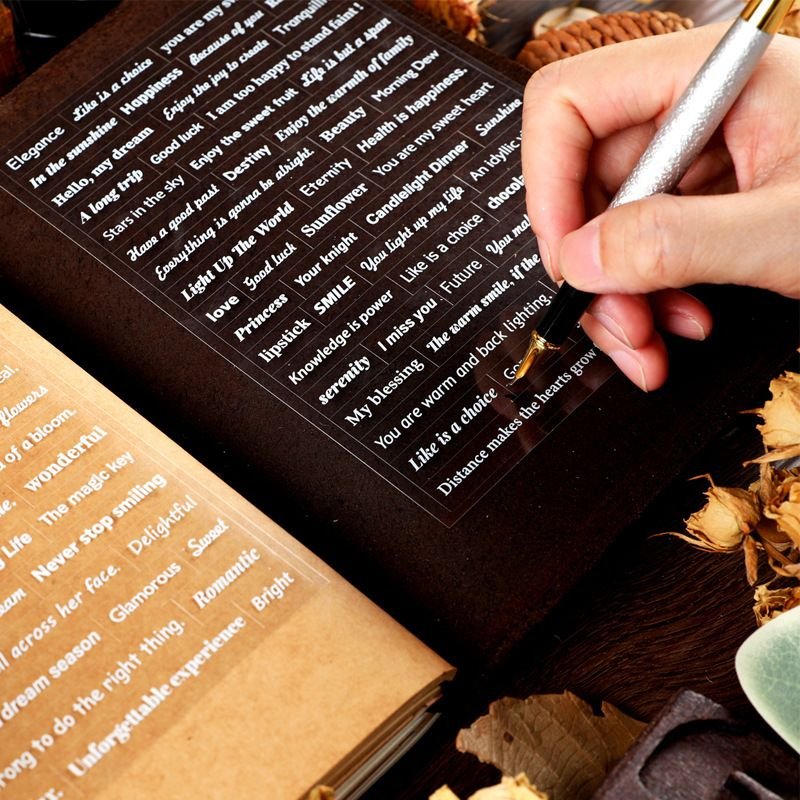 you are my
Like is a choice Because of you
Elegance Happiness Enjoy the joy to create
In the sunshine I am too happy to stand faint!
Hello, my dream Good luck Life is but a span
A long trip Enjoy the sweet fruit Enjoy the warmth of family
Stars in the sky Destiny Beauty Morning Dew
Have a good past Health is happiness.
Everything is gonna be alright Eternity You are my sweet heart Sunshine
Light Up The World Sunflower Candlelight Dinner An idyllic
love Good luck Your knight You light up my life
Princess SMILE Like is a choice
lipstick Knowledge is power Future
serenity I miss you The warm smile, if the
My blessing
You are warm and back lighting.
Like is a choice
Distance makes the hearts grow
flowers
of a bloom.
wonderful
Life The magic key
Never stop smiling
across her face. Delightful
dream season Glamorous Sweet
to do the right thing. Romantic
Unforgettable experience Bright